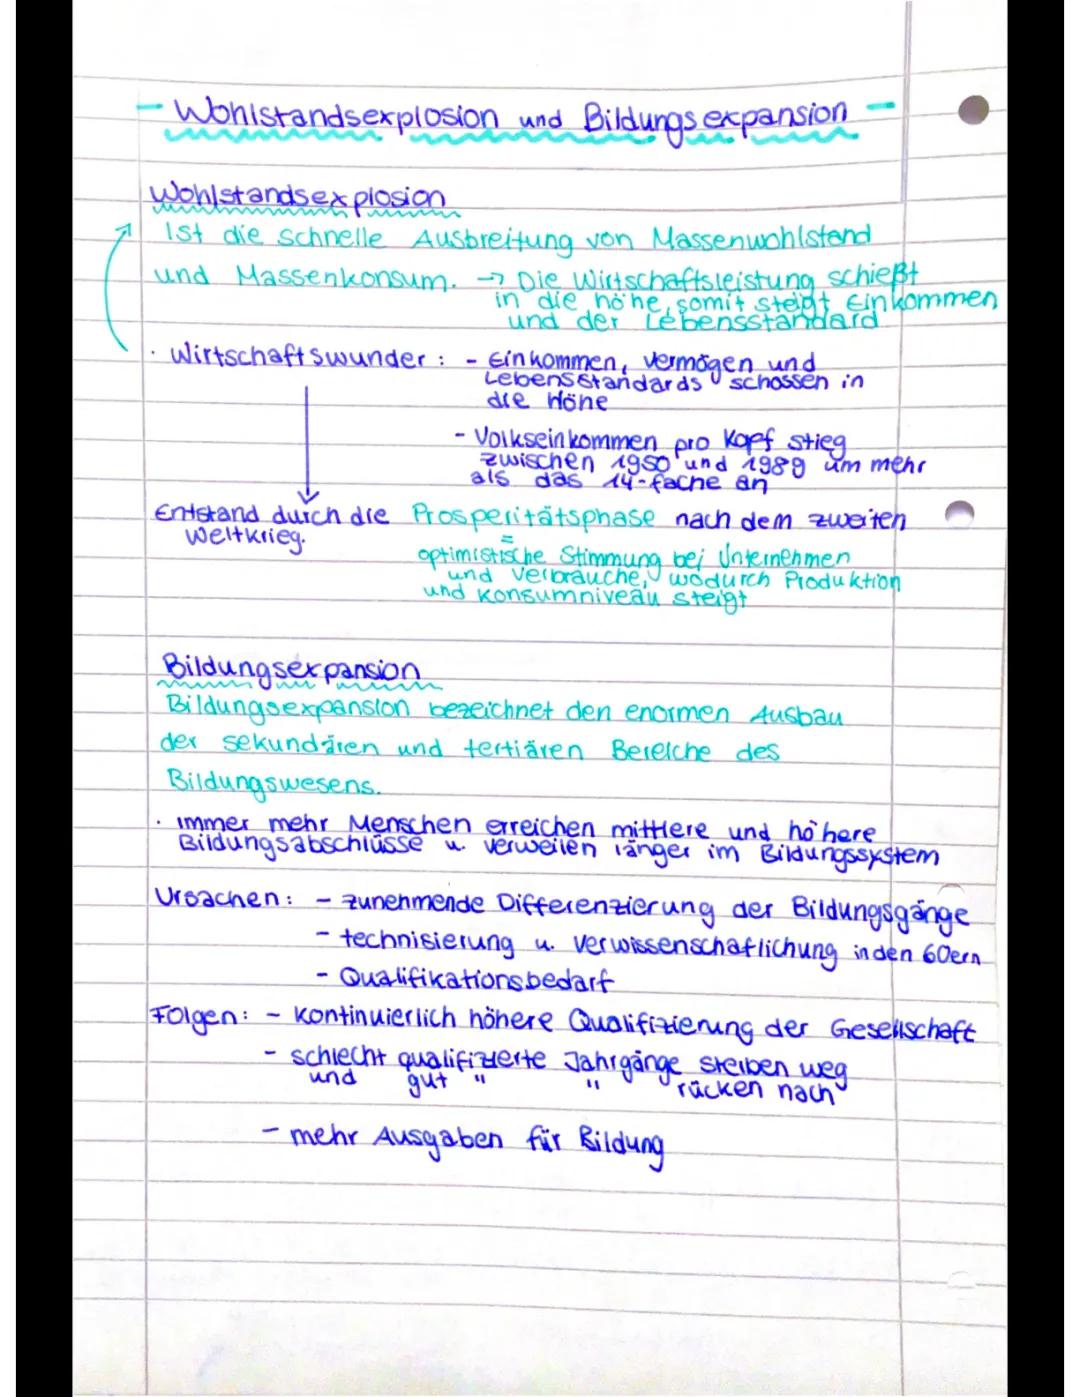 - Wohlstandsexplosion und Bildungsexpansion -
Wohlstandsexplosion
Ist die schnelle Ausbreitung von Massenwohlstand
und Massenkonsum. → Die Wirtschaftsleistung schießt
in die höhe, somit steigt Einkommen
und der Lebensstandard
· Wirtschaftswunder : - Einkommen, Vermögen und
Lebensstandards schossen in
die Höhe
- Volkseinkommen pro Kopf stieg
zwischen 1950 und 1989 um mehr
als das 14-fache an
Entstand durch die Prosperitätsphase nach dem zweiten
Weltkrieg.
=
optimistische Stimmung bei Unternehmen
und Verbrauche, wodurch Produktion
und Konsumniveau steigt
Bildungsexpansion
Bildungsexpansion bezeichnet den enormen Ausbau
der sekundären und tertiären Bereiche des
Bildungswesens.
· immer mehr Menschen erreichen mittlere und höhere
Bildungsabschlüsse u. verweilen länger im Bildungssystem
Ursachen: - zunehmende Differenzierung der Bildungsgänge
- technisierung u. Verwissenschaflichung in den 60ern
- Qualifikationsbedarf
Folgen: - kontinuierlich höhere Qualifizierung der Gesellschaft
- schlecht qualifizierte Jahrgänge sterben weg
und gut " " rücken nach
- mehr Ausgaben für Bildung